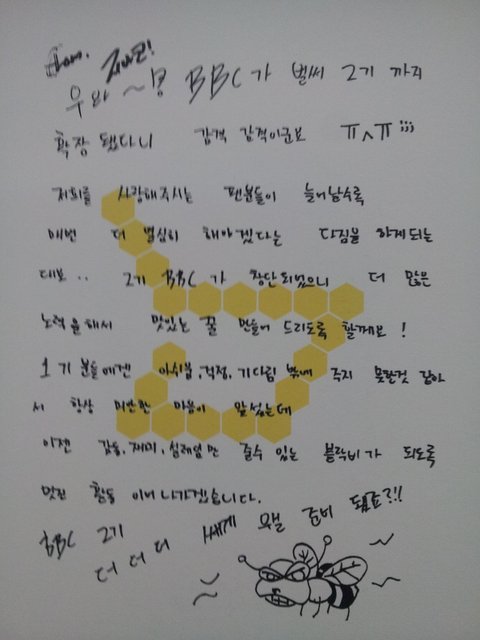 from. 지코!
우와 ~ 명 BBC가 벌써 2기 까지
확장 됐다니 감격 감격이군요 ㅠㅅㅠ;;;
저희를 사랑해주시는 팬분들이 늘어날수록
매번 더 열심히 해야겠다는 다짐을 하게되는
데요.. 2기 BBC가 창단되었으니 더 많은
노력을해서 맛있는 꿀 만들어 드리도록 할께요!
1기 분들에겐 아쉬움, 걱정, 기다림 밖에 주지 못한것 같아
서 항상 미안한 마음이 앞섰는데
이젠 감동, 재미, 설레임만 줄수 있는 블락비가 되도록
멋진 활동 이어나가겠습니다.
BBC 2기
더 더 더 쎄게 준비 됐죠?!!